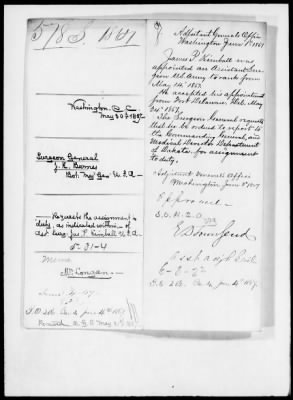 578 S. 1867
Washington, D.C.
May 30th 1867
Surgeon General
J. K. Barnes
Bvt. Maj. Gen. U.S.A.
Requests the assignment to
duty, as indicated within, of
Asst. Surg. Jas. P. Kimball U.S.A.
Memo
Mr. Longan
June 4, 67
S.O. 266 Par. 4. June 4th 1867.
Received A.G.O. May 31, 1867
Adjutant General's Office
Washington June 1st 1867
James P. Kimball was
appointed an Assistant Sur-
geon U.S. Army to rank from
May 14th 1867.
He accepted his appointment
from Fort Delaware, Del. May
24th 1867.
The Surgeon General requests
that he be ordered to report to
the Commanding General and
Medical Director Department
of Dakota, for assignment
to duty.
Adjutant General's Office
Washington, June 1867
Approved
E D Townsend
Asst Adjt Genl
S.O. 266. Par. 4. June 4th 1867.